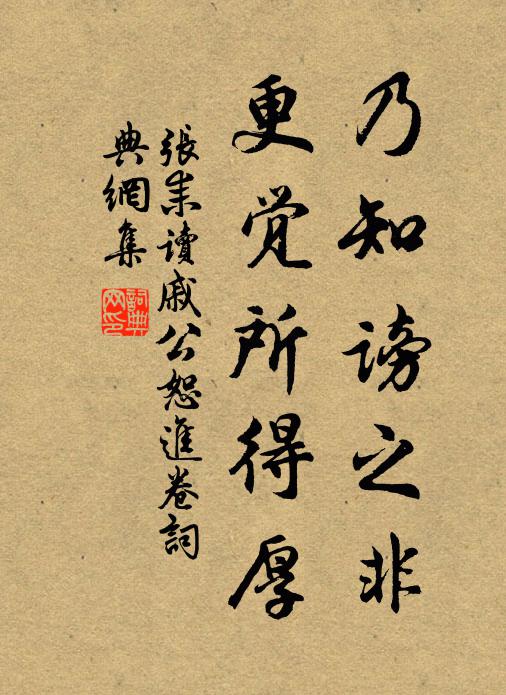 乃知谤之非
更觉所得厚
張耒讀戚公恕進卷詞
典網集
詞典
网印